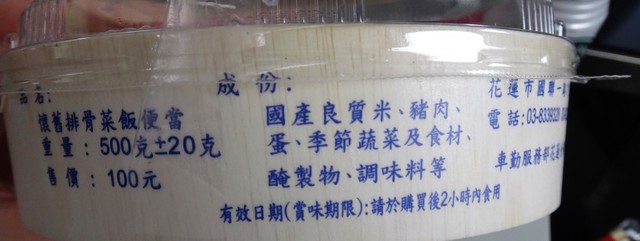 品名:
懷舊排骨菜飯便當
重量: 500克±20克
售價: 100元
成份:
國產良質米、豬肉、
蛋、季節蔬菜及食材、
醃製物、調味料等
有效日期(賞味期限):請於購買後2小時內食用
花蓮市國聯一
電話:03-8339
車勤服務部花蓮